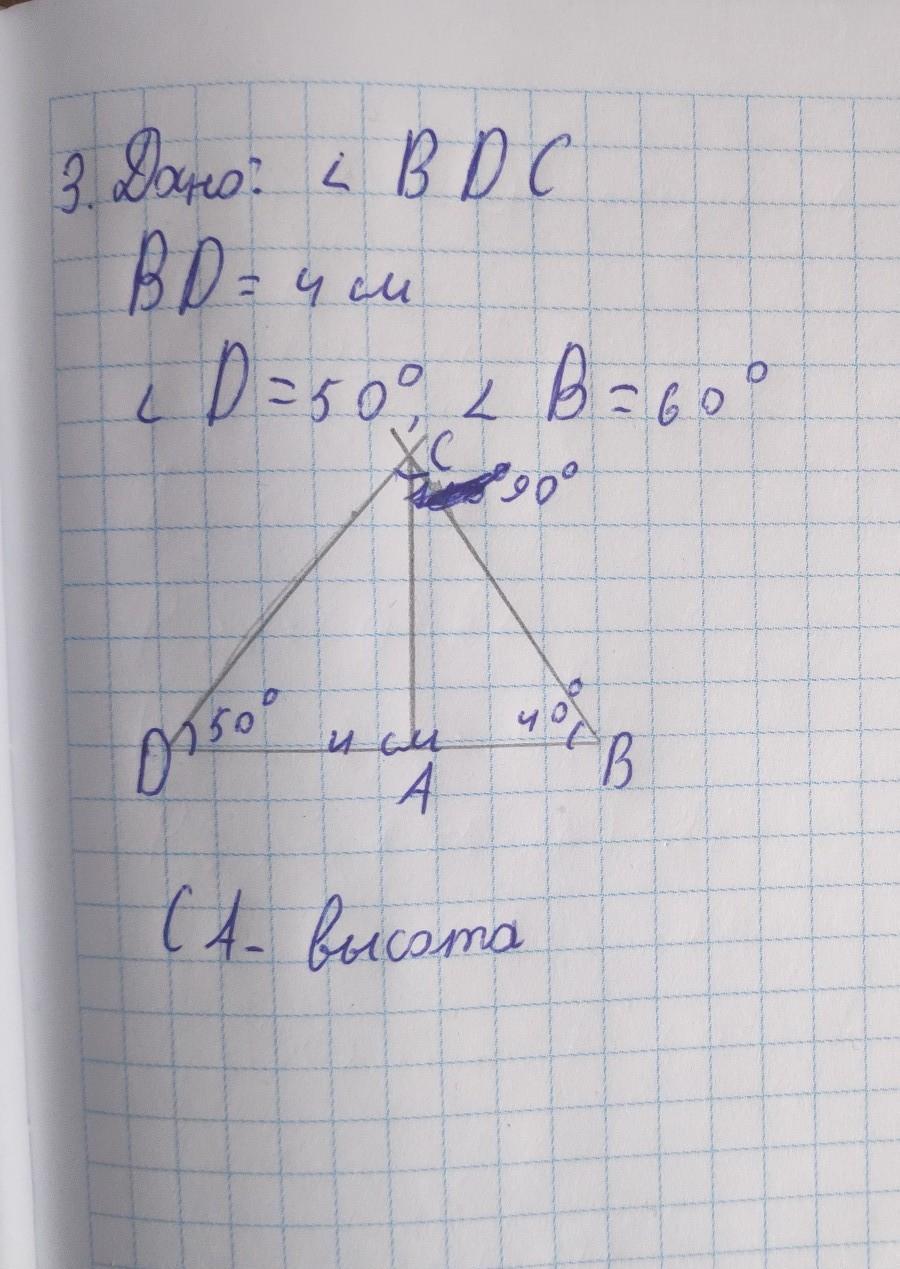 3. Дано: ∠ BDC
BD = 4 см
∠ D = 50°, ∠ B = 60°
C
90°
50°
4 см
40°
D
A
B
CA - высота